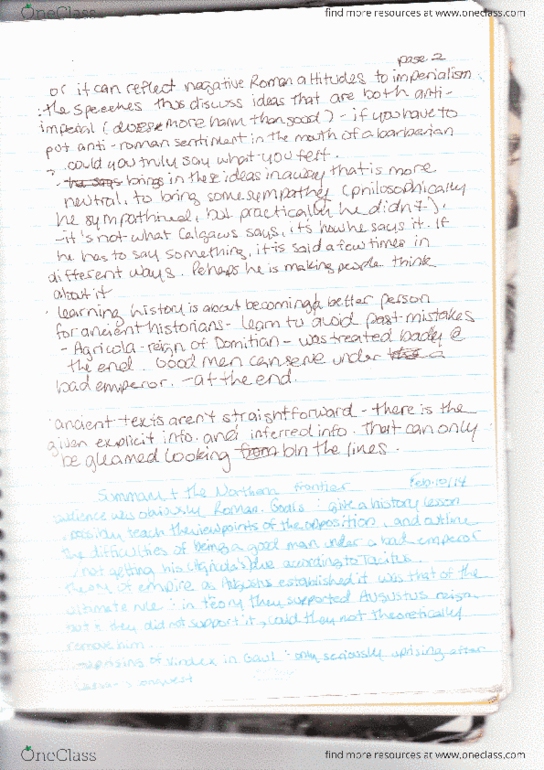 OneClass
find more resources at www.oneclass.com
page 2
or it can reflect negative Roman attitudes to imperialism
: the speeches thus discuss ideas that are both anti-
imperial (does more harm than good) - if you have to
put anti-roman sentiment in the mouth of a barbarian
? could you truly say what you felt.
- he says brings in these ideas in a way that is more
neutral, to bring some sympathy (philosophically
he sympathized, but practically he didn't).
- it's not what Calgacus says, its how he says it. If
he has to say something, it is said a few times in
different ways. Perhaps he is making people think
about it
· learning history is about becoming a better person
for ancient historians - learn to avoid past mistakes
- Agricola - reign of Domitian - was treated badly @
the end. Good men can serve under a
bad emperor. - at the end.
· ancient texts aren't straightforward - there is the
given explicit info. and inferred info. that can only
be gleamed looking from btn the lines.
Summary + the Northern frontier Feb. 10/14
audience was obviously Roman. Goals : give a history lesson
, possibly teach the viewpoints of the opposition, and outline
the difficulties of being a good man under a bad emperor
/ not getting his (Agricola's) due according to Tacitus
theory of empire as Augustus established it was that of the
ultimate rule : in teory they supported Augustus reign
but if they did not support it, could they not theoretically
remove him.
- uprising of Vindex in Gaul : only seriously uprising after
conquest
OneClass
find more resources at www.oneclass.com